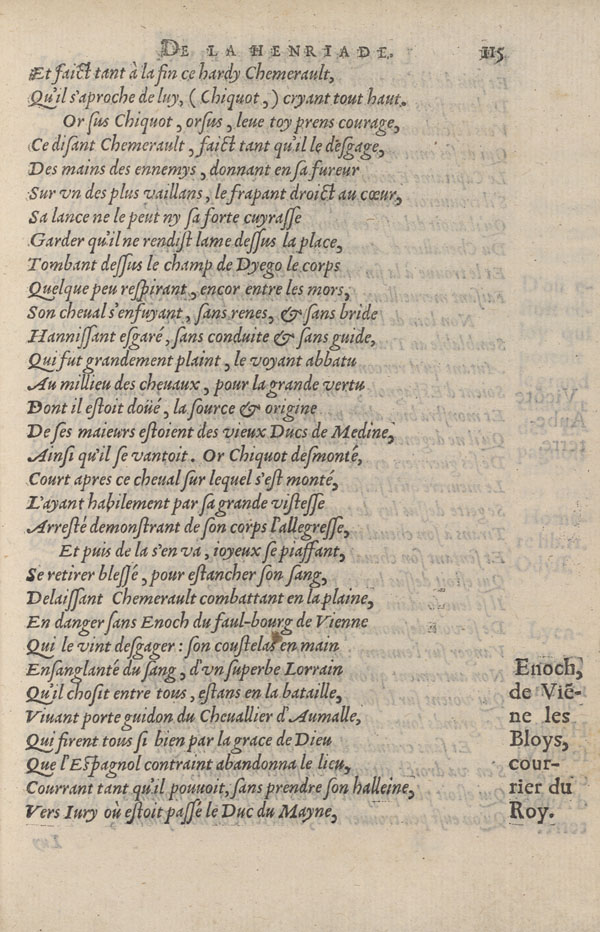 DE LA HENRIADE. 115
Et faict tant à la fin ce hardy Chemerault,
Qu'il s'aproche de luy, (Chiquot,) cryant tout haut.
Or sus Chiquot, orsus, leue toy prens courage,
Ce disant Chemerault, faict tant qu'il le desgage,
Des mains des ennemys, donnant en sa fureur
Sur vn des plus vaillans, le frapant droict au cœur,
Sa lance ne le peut ny sa forte cuyrasse
Garder qu'il ne rendist lame dessus la place,
Tombant dessus le champ de Dyego le corps
Quelque peu respirant, encor entre les mors,
Son cheual s'enfuyant, sans renes, & sans bride
Hannissant esgaré, sans conduite & sans guide,
Qui fut grandement plaint, le voyant abbatu
Au millieu des cheuaux, pour la grande vertu
Dont il estoit doüé, la source & origine
De ses maieurs estoient des vieux Ducs de Medine,
Ainsi qu'il se vantoit. Or Chiquot desmonté,
Court apres ce cheual sur lequel s'est monté,
L'ayant habilement par sa grande vistesse
Arresté demonstrant de son corps l'allegresse,
Et puis de la s'en va, ioyeux se piaffant,
Se retirer blessé, pour estancher son sang,
Delaissant Chemerault combattant en la plaine,
En danger sans Enoch du faul-bourg de Vienne
Qui le vint desgager : son coustelas en main
Ensanglanté du sang, d'vn superbe Lorrain
Qu'il chosit entre tous, estans en la bataille,
Viuant porte guidon du Cheuallier d'Aumalle,
Qui firent tous si bien par la grace de Dieu
Que l'Espagnol contraint abandonna le lieu,
Courrant tant qu'il pouuoit, sans prendre son halleine,
Vers Iury où estoit passé le Duc du Mayne,
Enoch,
de Viē-
ne les
Bloys,
cour-
rier du
Roy.